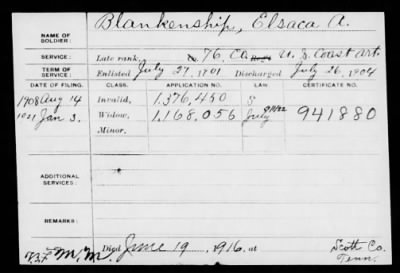 NAME OF SOLDIER: Blankenship, Elsaca A.
SERVICE: Late rank, 76 Co. U. S. Coast Art.
TERM OF SERVICE: Enlisted July 27, 1901 Discharged July 26, 1904
DATE OF FILING. CLASS. APPLICATION NO. LAW. CERTIFICATE NO.
1908 Aug 14 Invalid, 1,376,450 S
1921 Jan 3. Widow, 1,168,056 July 941880
Minor,
ADDITIONAL SERVICES:
REMARKS:
M. M. Died June 19, 1916, at Scott Co.
Tenn.